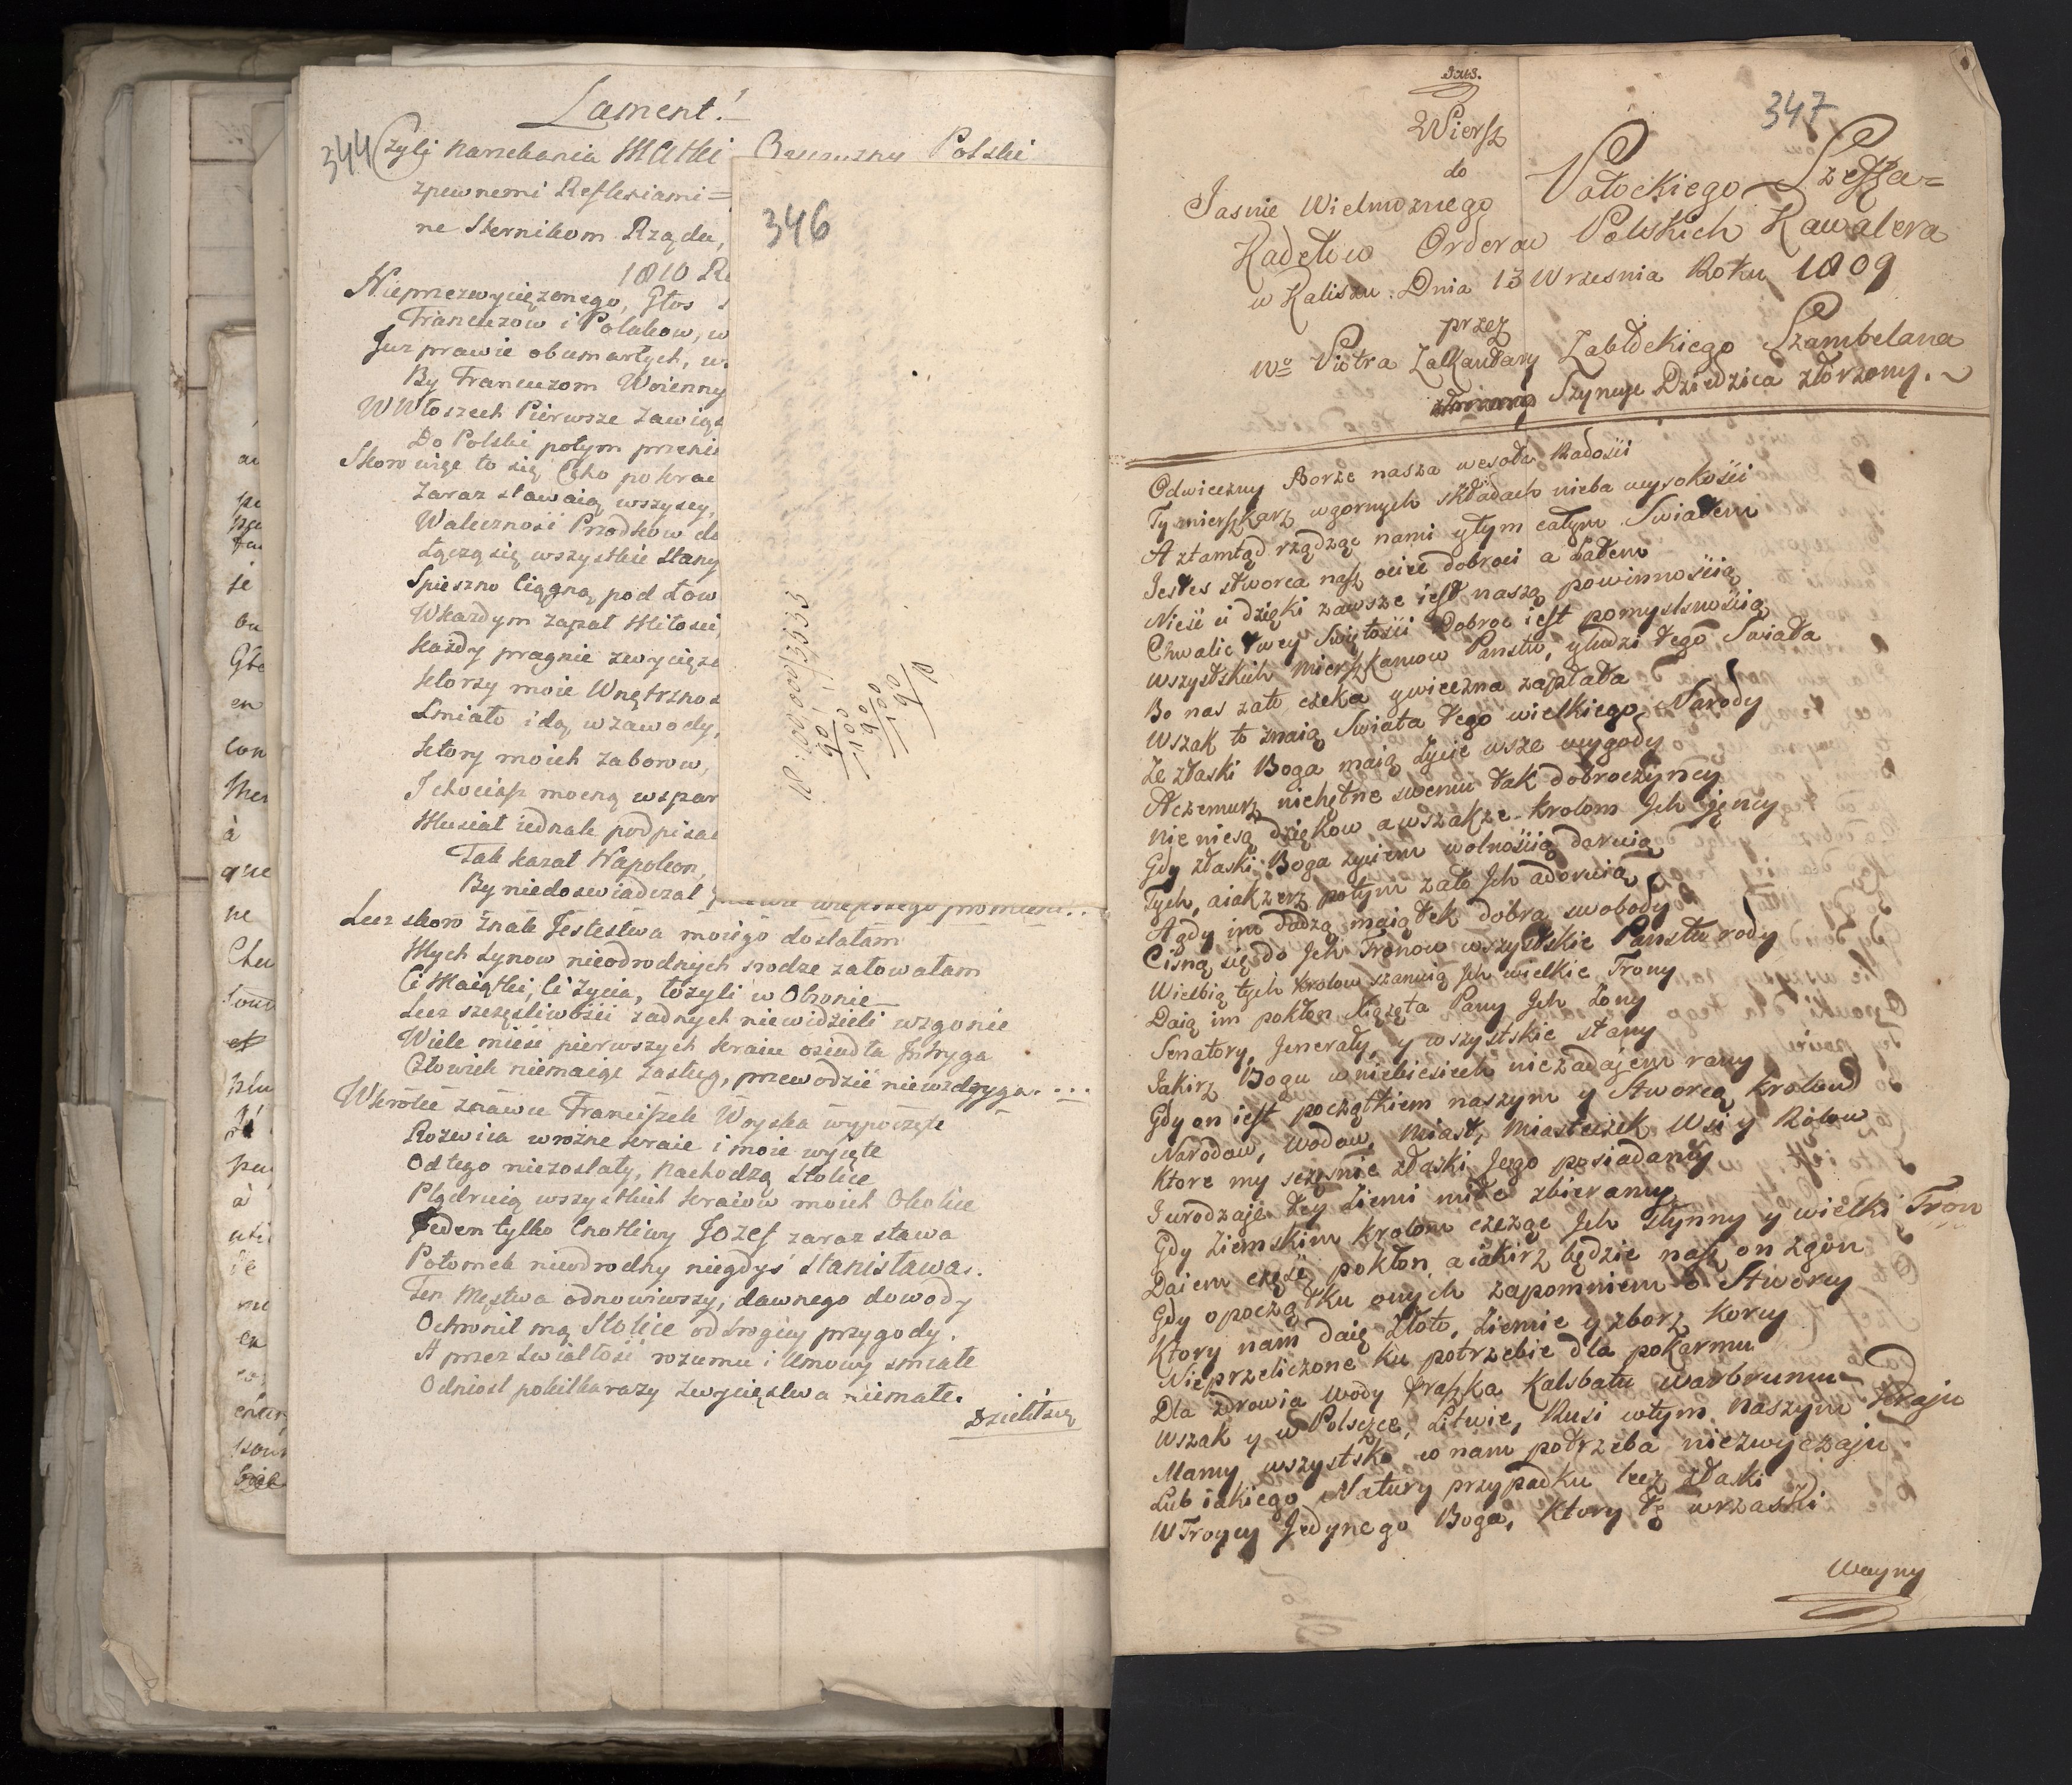 Lament!
344 Czyli narzekania Matki Oyczyzny Polski
zpewnemi Reflexiami =
ne Sternikom Rządu,
1810 R
Nieprzezwyciężonego, Głos
Francuzow i Polakow, w
Juz prawie obumarłych, w
By Francuzom Woienny
W Włoszech Pierwsze Zawią
Do Polski potym przeni
Skoro więc to się Echo pokrae
Zaraz stawaią wszyscy,
Waleczność Przodkow do
Łączą się wszystkie Stany
Spieszno Ciągną pod
Wkazdym zapał Miłosci,
każdy pragnie zwycięz
ktorzy moie Wnętrznos
Smiało idą wzawody,
ktory moich Zaborow,
I chociasz mocną wspar
Musiał iednak podpisa
Tak kazał Napoleon,
By niedoswiadczał promieni..
Lecz skoro znak Jestestwa moiego dostałam
Mych Synow nieodrodnych srodze załowałam
Ci Maiątki, Ci życia, łożyli w Obronie
Lecz szczęśliwości zadnych niewidzieli wzgonie
Wiele mieść pierwszych kraiu osiadła Intryga
Człowiek niemaiąc zasług, przewodzić niewzdryga....
Wkrotce znawu Franciszek Woyska wypoczęte
Rozwiia wrożne kraie i moie wyięte
Od tego niezostały, Nachodzą Stolice
Plądruią wszystkich kraiow moich Okolice
Jeden tylko Cnotliwy Jozef zaraz stawa
Potomek nieodrodny niegdyś Stanisława.
Ten Męstwa odnowiwszy, dawnego dowody
Ochronił mą Stolice od srogiey przygody.
A przez swiatłość rozumu i Umowy smiałe
Odniosł pokilkarazy zwycięstwa niemałe.
Dzielił się
346
347
Wiersz
do
Jasnie Wielmoznego Potockiego Szeffa=
Kadetów Orderow Polskich Kawalera
w Kaliszu. Dnia 13 Wrzesnia Roku 1809
przez
Wo Piotra Zabłockiego Szambelana
Dziedzica złorzony.
Odwieczny Borze nasza wesoła Radości
Ty mierszkarz wgornych składach nieba wysokości
A ztamtąd rządząc nami ytym całym Swiatem
Jestes stworca nasz ociec dobroci a Latem
Nieść ci dzięki zawsze iest naszą powinnością
Chwalić twey Swiętości dobroć iest pomyslnością
wszystskich Mierszkancow Panstw, yludzi tego Swiata
Bo nas zato czeka ywieczna zapłata
Wszak to znaią Swiata tego wielkiego Narody
Ze złaski Boga maią zycie wsze wygody
Aczemurz niechętne swemu tak dobroczyncy
Nie niesą dzięków awszakze krolom Jch jęncy
Gdy złaski Boga zyciem wolnością daruią
Tych, aiakzerz potym zato Jch adoruią
Agdy im dadzą maiątek dobra swobody
Cisną się do Jch Tronow wszystskie Panstw rody
Wielbią tych krolow szanuią Jch wielkie Trony
Daią im pokłon Xiązęta Pany Jch Zony
Senatory, Jenerały, y wszystskie stany
Jakirz Bogu wniebiesiech niezadajem rany
Gdy on iest początkiem naszym y Stworcą krolow
Narodow, Wodow, Miast, Miasteczek Wsi y Rolow
Ktore my sczęsnie złaski Jego posiadamy
I urodzaje tey Ziemi miłe zbieramy
Gdy Ziemskim krolom czcząc Jch słynny y wielki Tron
Dajem cześć, pokłon, aiakirz będzie nasz on zgon
Gdy opoczątku onych zapomniem o Stworcy
Ktory nam daię Złoto, Ziemie y zborz korcy
Nieprzeliczone ku potrzebie dla pokarmu
Dla zdrowia Wody fraszka Kalsbatu warbrunu
Wszak y w Polszcze, Litwie, Rusi wtym Naszym Kraju
Mamy wszystsko co nam potrzeba niezwyczaju
Lub iakiego Natury przypadku lecz złaski
W Troycy Jedynego Boga, Ktory tę wrzaski
Woyny